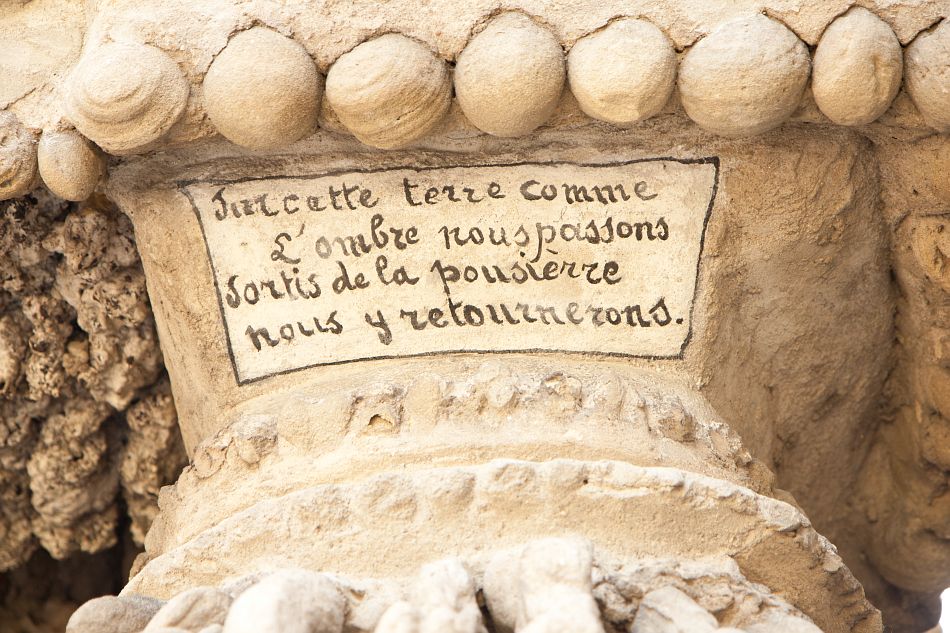 Sur cette terre comme
L'ombre nous passons
Sortis de la pousièrre
nous y retournerons.